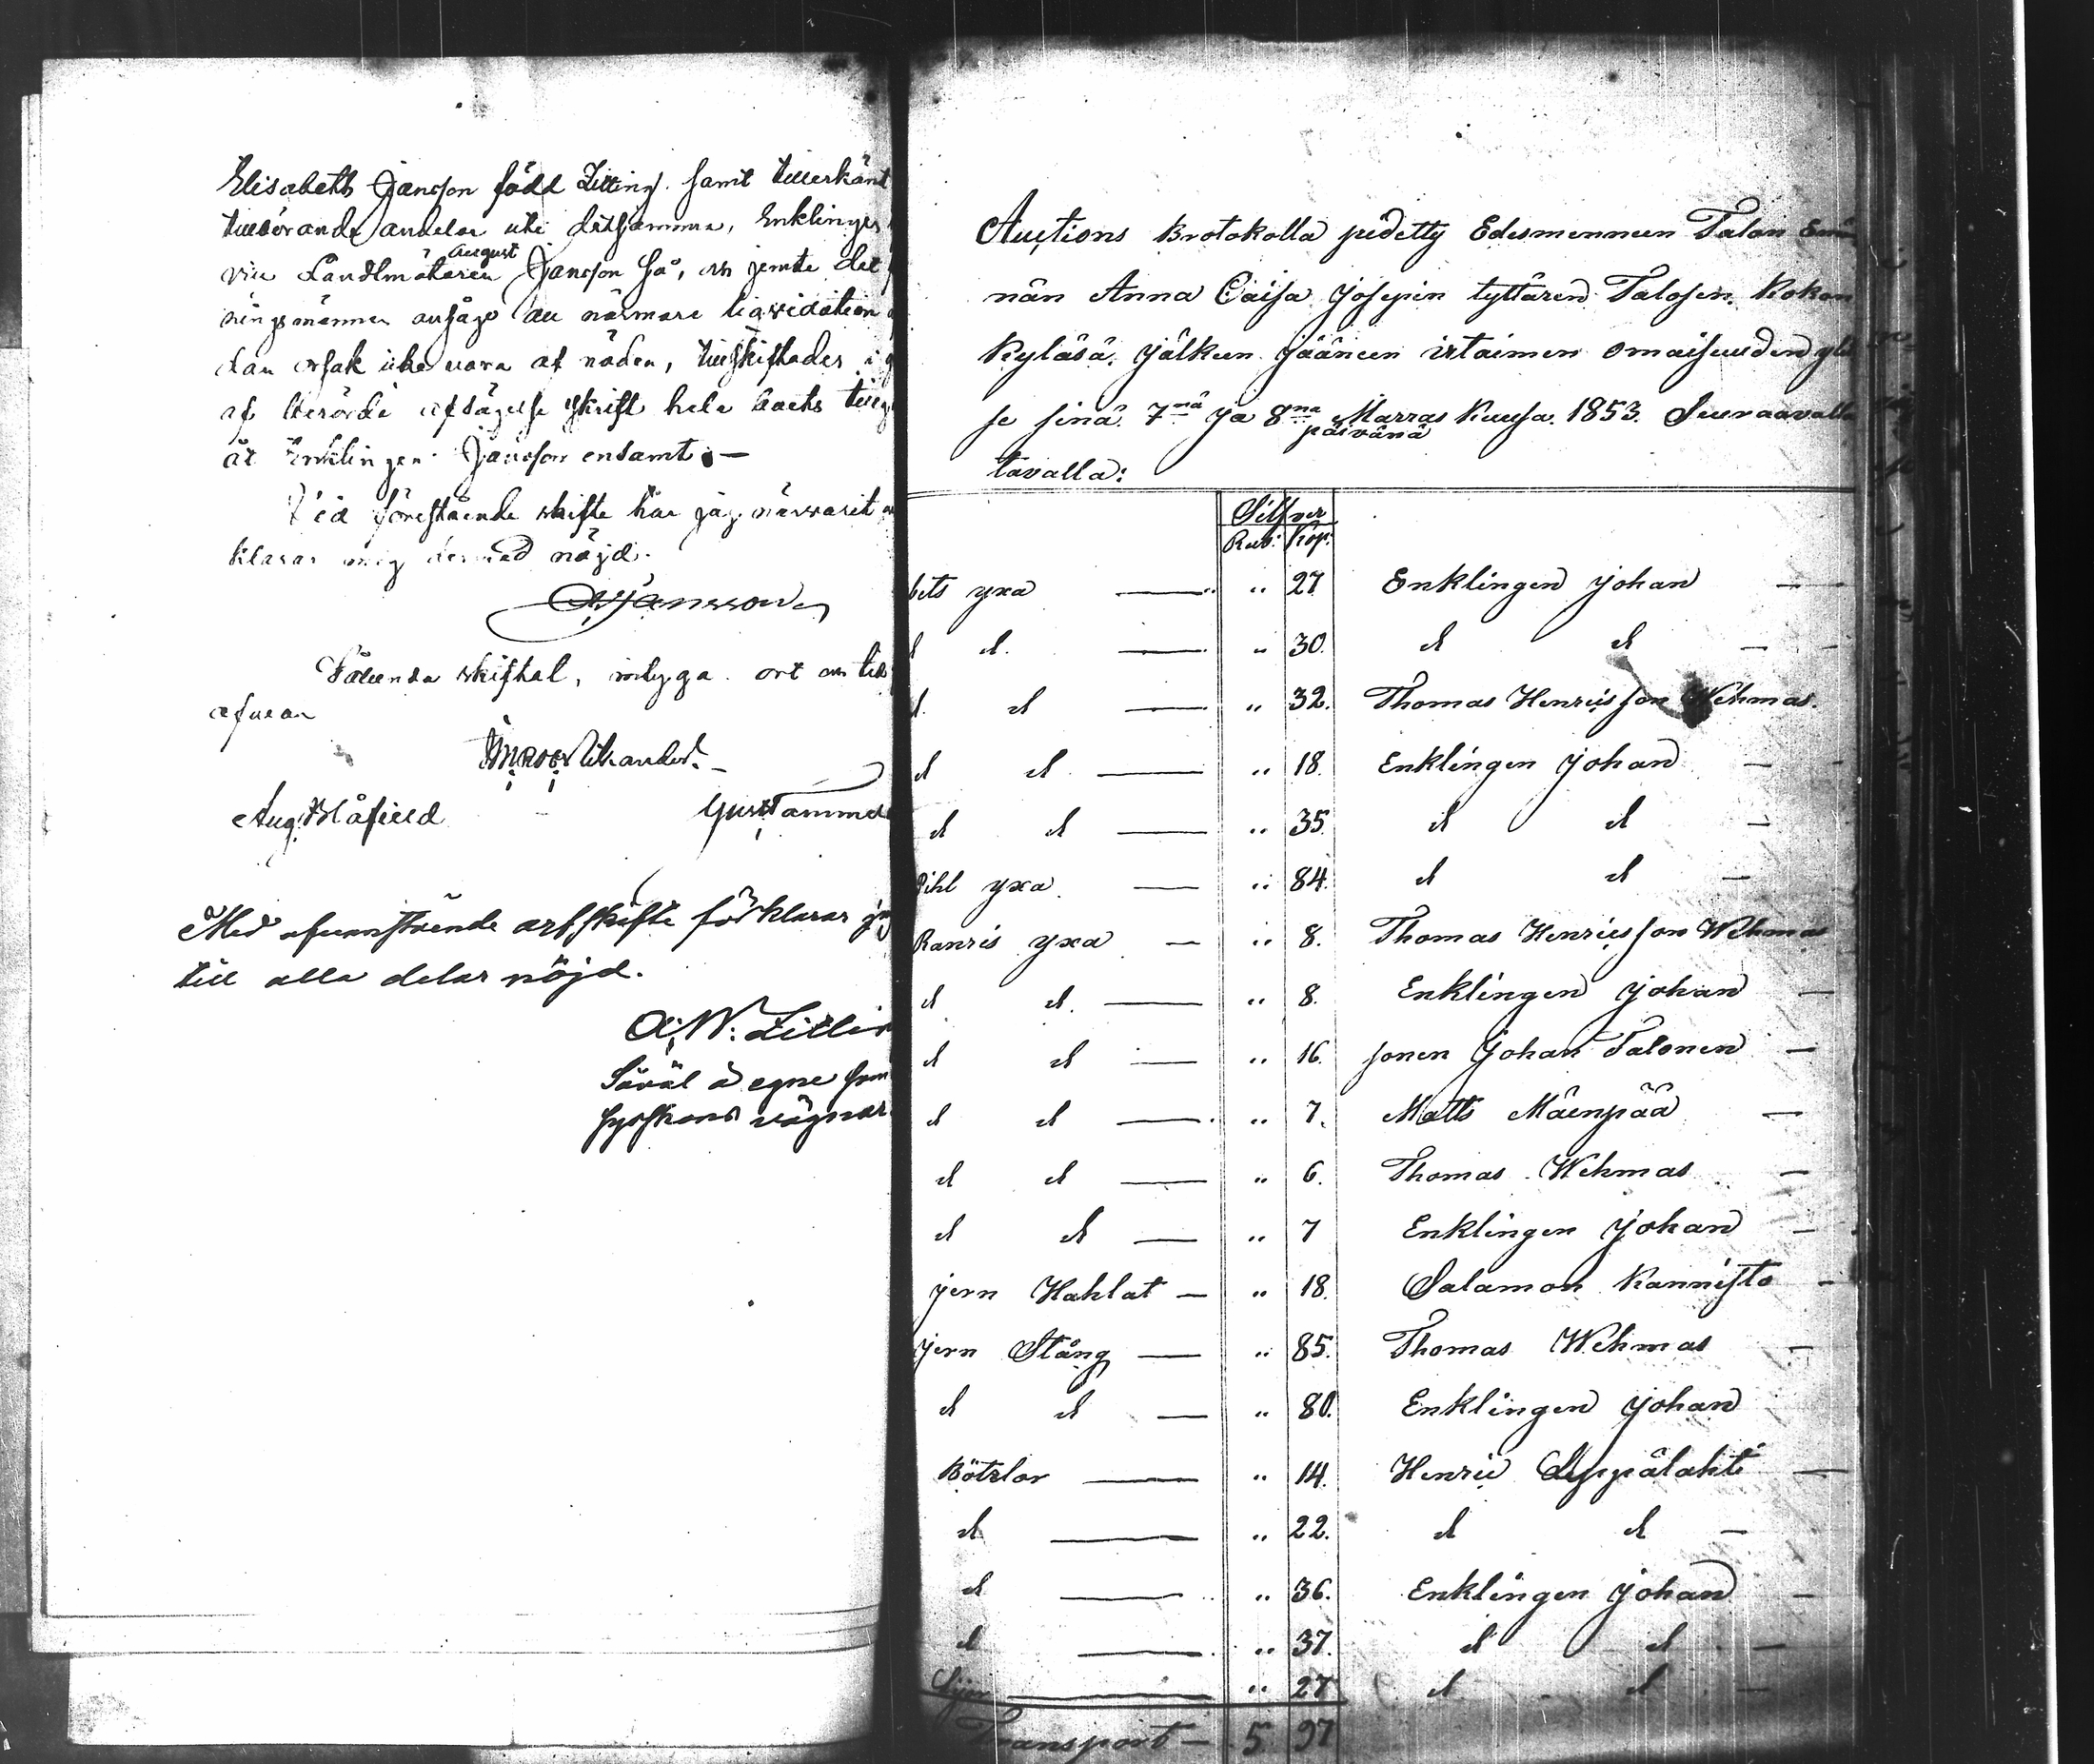 Elisabeth Jansson född Zitting. samt tillerkänt
tillhörande andelar uti detsamma, Enklingen
August
Landtmätaren Jansson så, och jemte det
ningsmännen ansågo all närmare liqvidation
dan orsak icke vara af nöden, tillskiftades
af berörde afsägelse skrift hela boets
åt Enklingen Jansson ensamt; —
Vid förestående skifte har jag närvarit
klarar mig dermed nöjd.
Jansson
skiftat, intyga ort och tid
ofvan
Aug. Blåfield Gust Tamme
Med ofvanstående arfskifte förklarar jag
till alla delar nöjd.
A. W. Zittin
Såväl å egne som
syskons vägnar
Auctions Brotokolla pidetty Edesmenneen Talon Emä
nän Anna Caisa Josepin tyttären Talosen, Kokon
Kyläsä, jälkeen jääneen irtaimen omaisuuden yli
se sinä 7nä ja 8na Marras Kuusa. 1853. Seuraavalla
päivänä
tavalla:
Silfver
Rub: Kop:
bets yxa — " 27 Enklingen Johan —
d d. — " 30. d d —
d. d — " 32. Thomas Henricsson Wehmas.
d d — " 18. Enklingen Johan —
d d — " 35. d d —
Pihl yxa — " 84. d d —
Ranris yxa — " 8. Thomas Henricsson Wehmas
d d. — " 8. Enklingen Johan —
d d — " 16. sonen Johan Talonen —
d d — " 7. Matts Mäenpää —
d d — " 6. Thomas Wehmas —
d d — " 7 Enklingen Johan —
jern Hahlat — " 18. Salamon Kannisto —
jern Stång — " 85. Thomas Wehmas —
d d — " 80. Enklingen Johan
Bötslor — " 14. Henric Leppälahti —
d — " 22. d d —
d — " 36. Enklingen Johan —
d — " 37. d d —
— " 27 d d —
Transport — 5 97